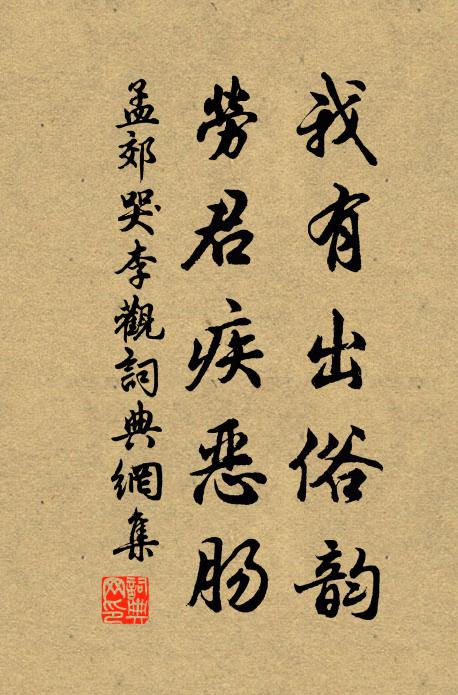 我有出俗韵
勞君疾恶肠
孟郊哭李觀詞典網集
詞典網印